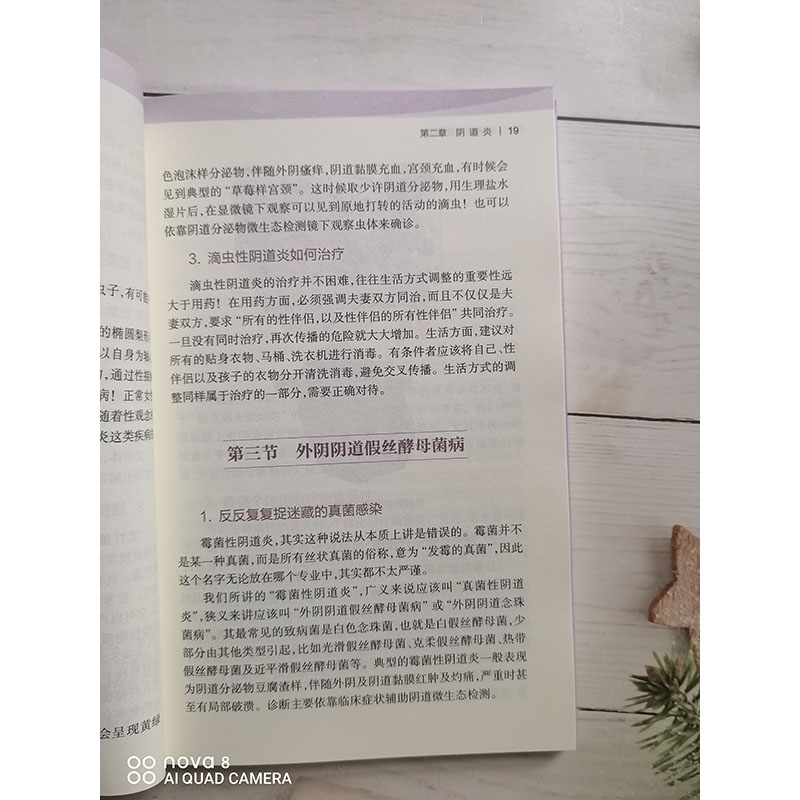 双子，有可能
的椭圆梨形
以自身为轴
通过性接
病！正常女性
随着性观念
炎这类疾病
会呈现黄绿
第二章 阴道炎 | 19
色泡沫样分泌物，伴随外阴瘙痒，阴道黏膜充血，宫颈充血，有时候会
见到典型的“草莓样宫颈”。这时候取少许阴道分泌物，用生理盐水
湿片后，在显微镜下观察可以见到原地打转的活动的滴虫！也可以
依靠阴道分泌物微生态检测镜下观察虫体来确诊。
3. 滴虫性阴道炎如何治疗
滴虫性阴道炎的治疗并不困难，往往生活方式调整的重要性远
大于用药！在用药方面，必须强调夫妻双方同治，而且不仅仅是夫
妻双方，要求“所有的性伴侣，以及性伴侣的所有性伴侣”共同治疗。
一旦没有同时治疗，再次传播的危险就大大增加。生活方面，建议对
所有的贴身衣物、马桶、洗衣机进行消毒。有条件者应该将自己、性
伴侣以及孩子的衣物分开清洗消毒，避免交叉传播。生活方式的调
整同样属于治疗的一部分，需要正确对待。
第三节 外阴阴道假丝酵母菌病
1. 反反复复捉迷藏的真菌感染
霉菌性阴道炎，其实这种说法从本质上讲是错误的。霉菌并不
是某一种真菌，而是所有丝状真菌的俗称，意为“发霉的真菌”，因此
这个名字无论放在哪个专业中，其实都不太严谨。
我们所讲的“霉菌性阴道炎”，广义来说应该叫“真菌性阴道
炎”，狭义来讲应该叫“外阴阴道假丝酵母菌病”或“外阴阴道念珠
菌病”。其最常见的致病菌是白色念珠菌，也就是白假丝酵母菌，少
部分由其他类型引起，比如光滑假丝酵母菌、克柔假丝酵母菌、热带
假丝酵母菌及近平滑假丝酵母菌等。典型的霉菌性阴道炎一般表现
为阴道分泌物豆腐渣样，伴随外阴及阴道黏膜红肿及灼痛，严重时甚
至有局部破溃。诊断主要依靠临床症状辅助阴道微生态检测。
nova 8
AI QUAD CAMERA